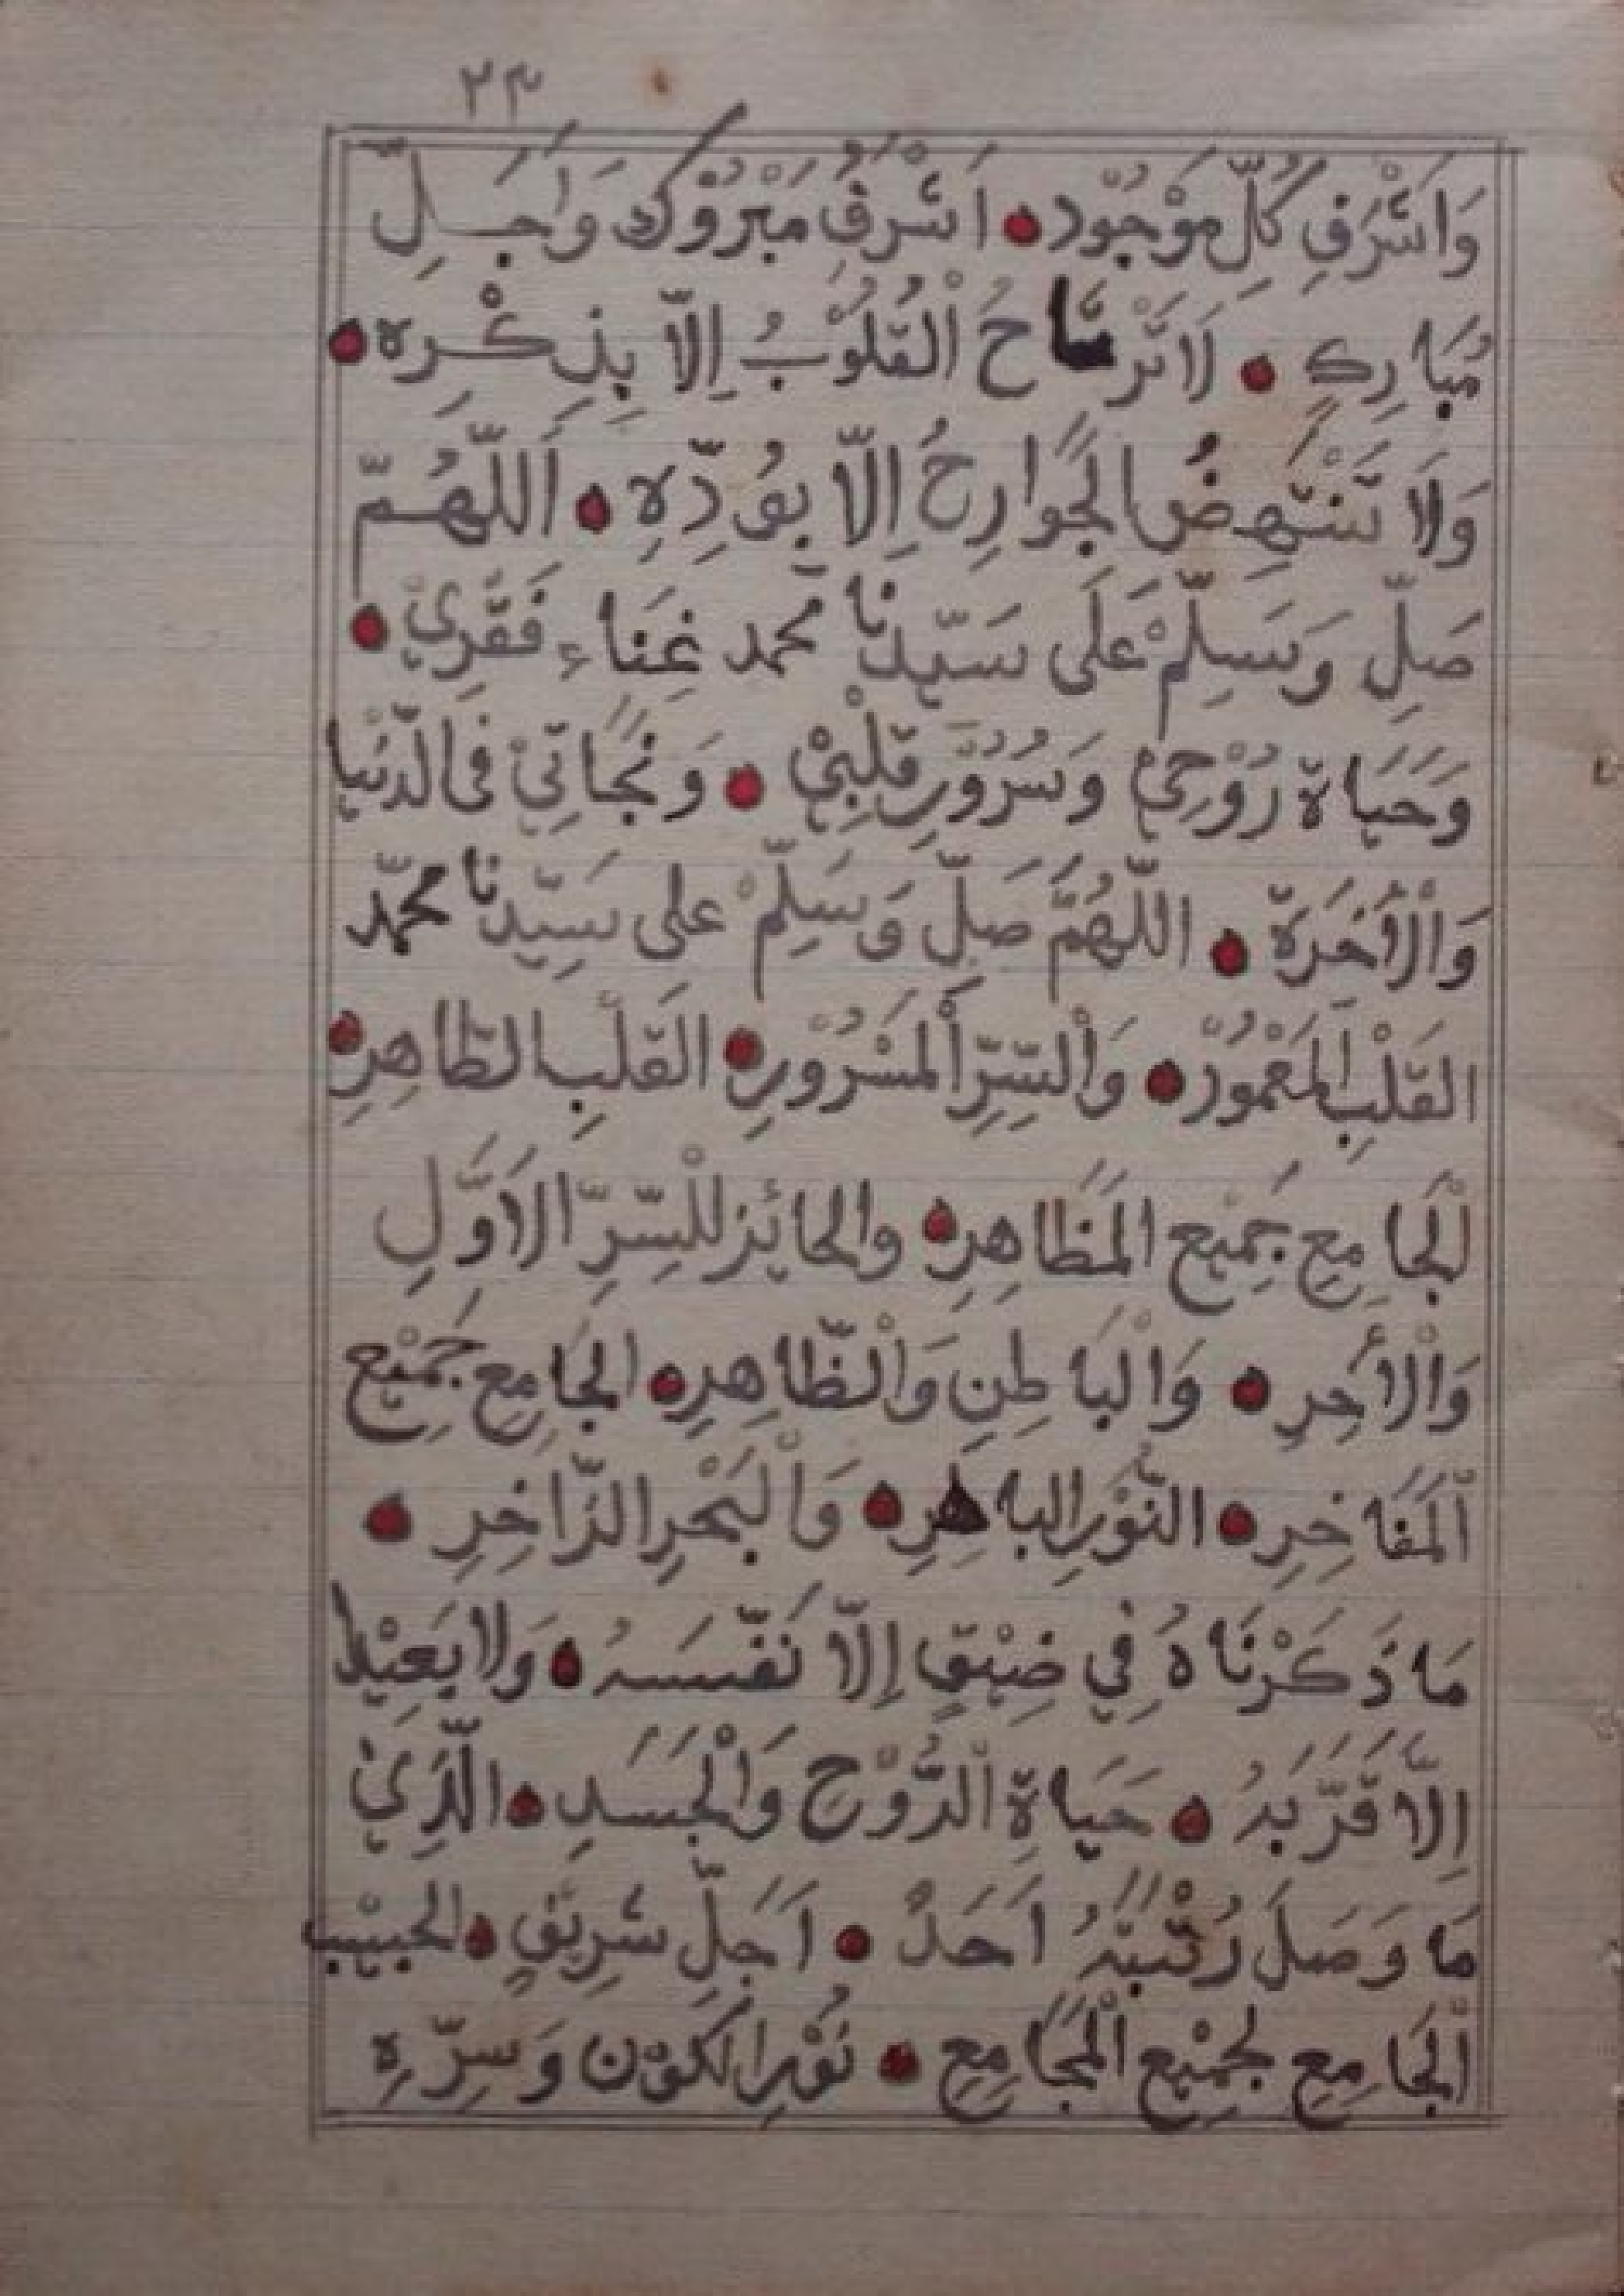 ٢٣
وَاَشْرَفِ كُلِّ مَوْجُود • اَشْرَفُ مَبْرُوْكٍ وَاَجَلِّ
مُبَارِكٍ • لَا تَرْتَاحَ الْقُلُوْبُ اِلَّا بِذِكْرِه •
وَلَا تَنْتَهِضُ الْجَوَارِحُ اِلَّا بِوُدِّهِ • اَللّٰهُمَّ
صَلِّ وَسَلِّمْ عَلَى سَيِّدِنَا محمد غِنَاءِ فَقْرِيْ •
وَحَيَاةِ رُوْحِيْ وَسُرُوْرِ قَلْبِيْ • وَنَجَاتِيْ فى الدُّنْيَا
وَالْأَخِرَةِ • اللّٰهُمَّ صَلِّ وَسَلِّمْ على سَيِّدِنَا محمّد
القَلْبِ الْمَعْمُوْرِ • وَالْسِّرِّ الْمَسْرُوْرِ • القَلْبِ الطَّاهِرِ •
الْجَامِعِ جَمِيْعِ الْمَظَاهِرِ • والحائِزِ لِلْسِّرِّ الاَوَّلِ
وَالْأَخِرِ • وَالْبَاطِنِ وَالْظَّاهِرِ • الجَامِعِ جَمِيْعِ
الْمَفَاخِرِ • النُّوْرِ الباهِرِ • وَالْبَحْرِ الزَّاخِرِ •
مَا ذَكَرْنَاهُ فِي ضِيْقٍ اِلَّا نَفَّسَهُ • وَلَا بَعِيْدًا
اِلَّا قَرَّبَهُ • حَيَاةِ الْرُّوْحِ وَالْجَسَدِ • الَّذِيْ
مَا وَصَلَ رُتْبَتَهُ اَحَدٌ • اَجَلِّ شَرِيْفٍ • الحبيْب
الْجَامِعِ لِجَمِيْعِ الْمَجَامِعِ • نُوْرِ الكَوْن وَسِرِّهِ